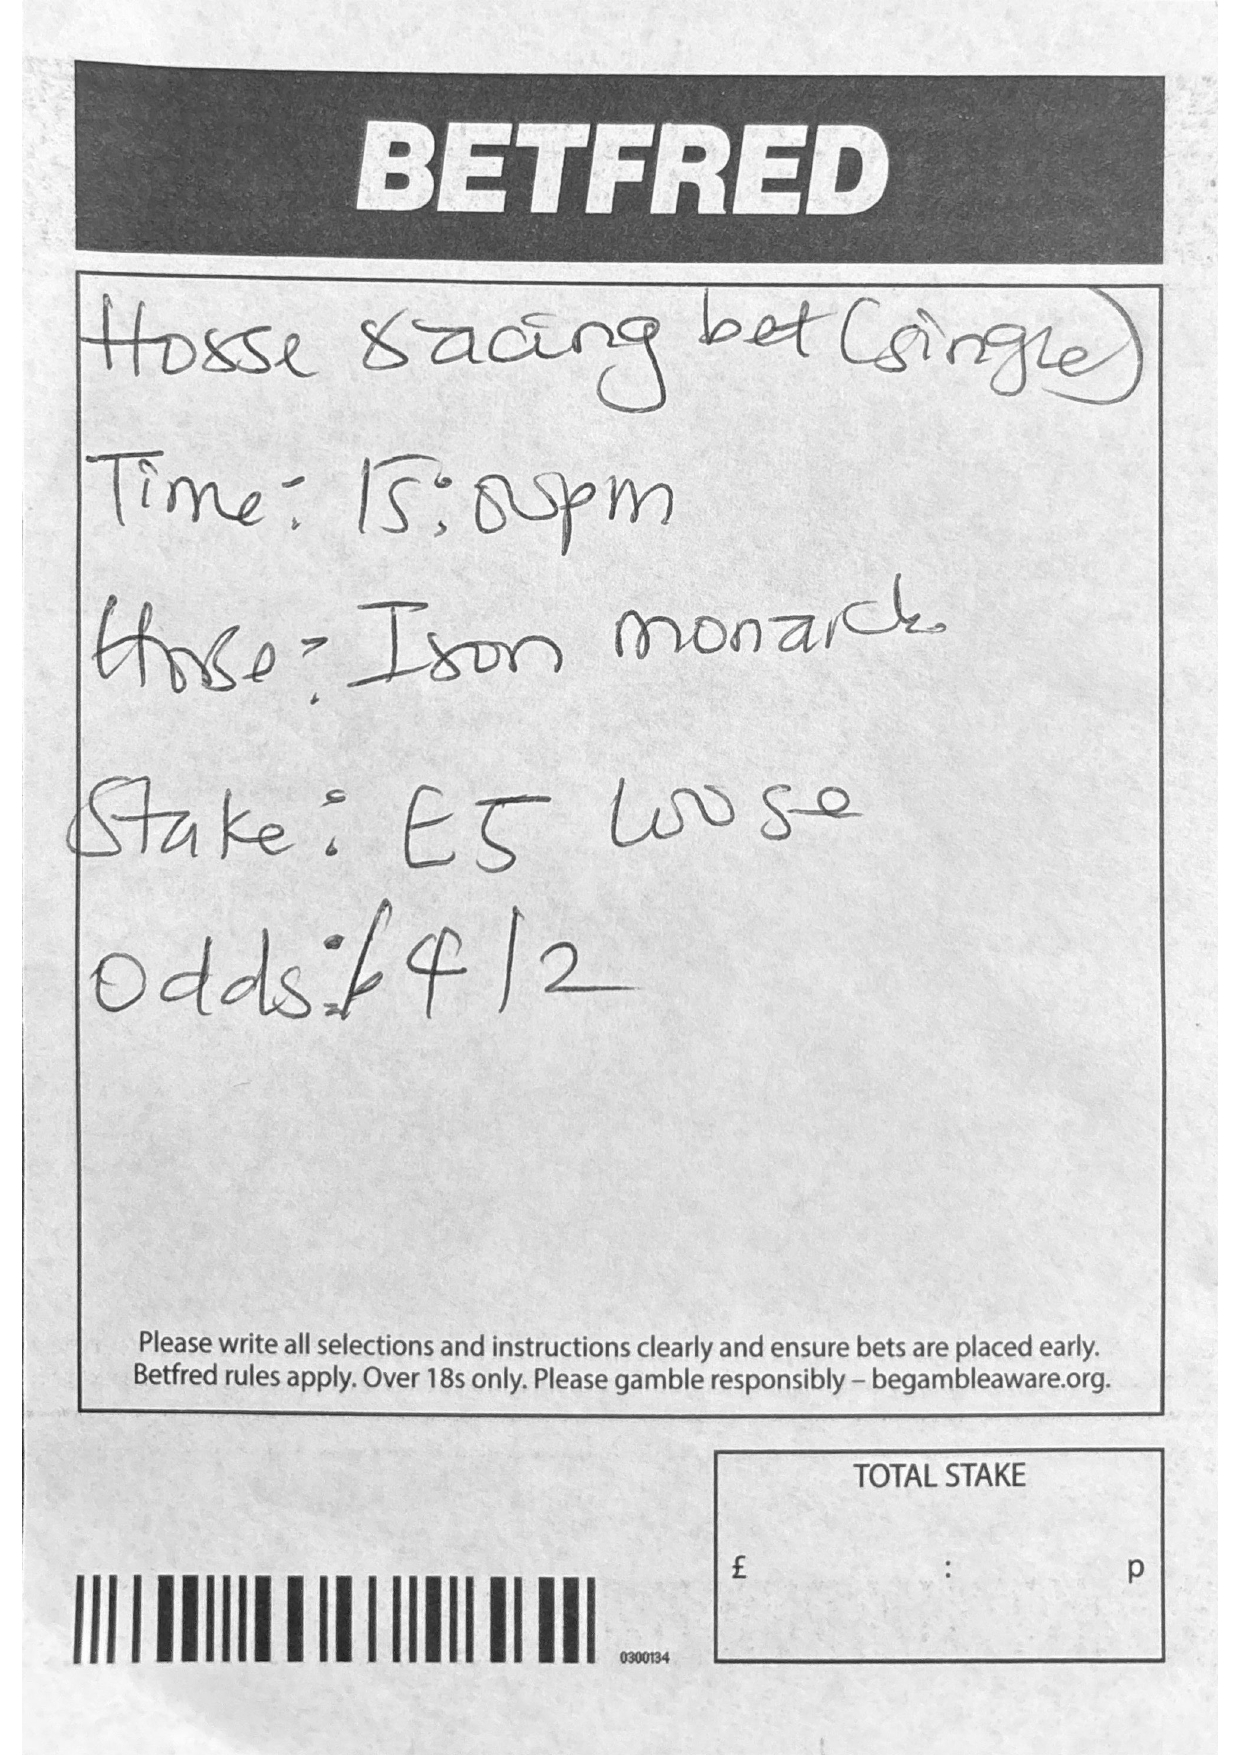 BETFRED
Horse racing bet (single)
Time: 15:05pm
Horse: Iron monarch
Stake: £5 loose
Odds: 4/2
Please write all selections and instructions clearly and ensure bets are placed early.
Betfred rules apply. Over 18s only. Please gamble responsibly – begambleaware.org.
TOTAL STAKE
£ : p
0300134